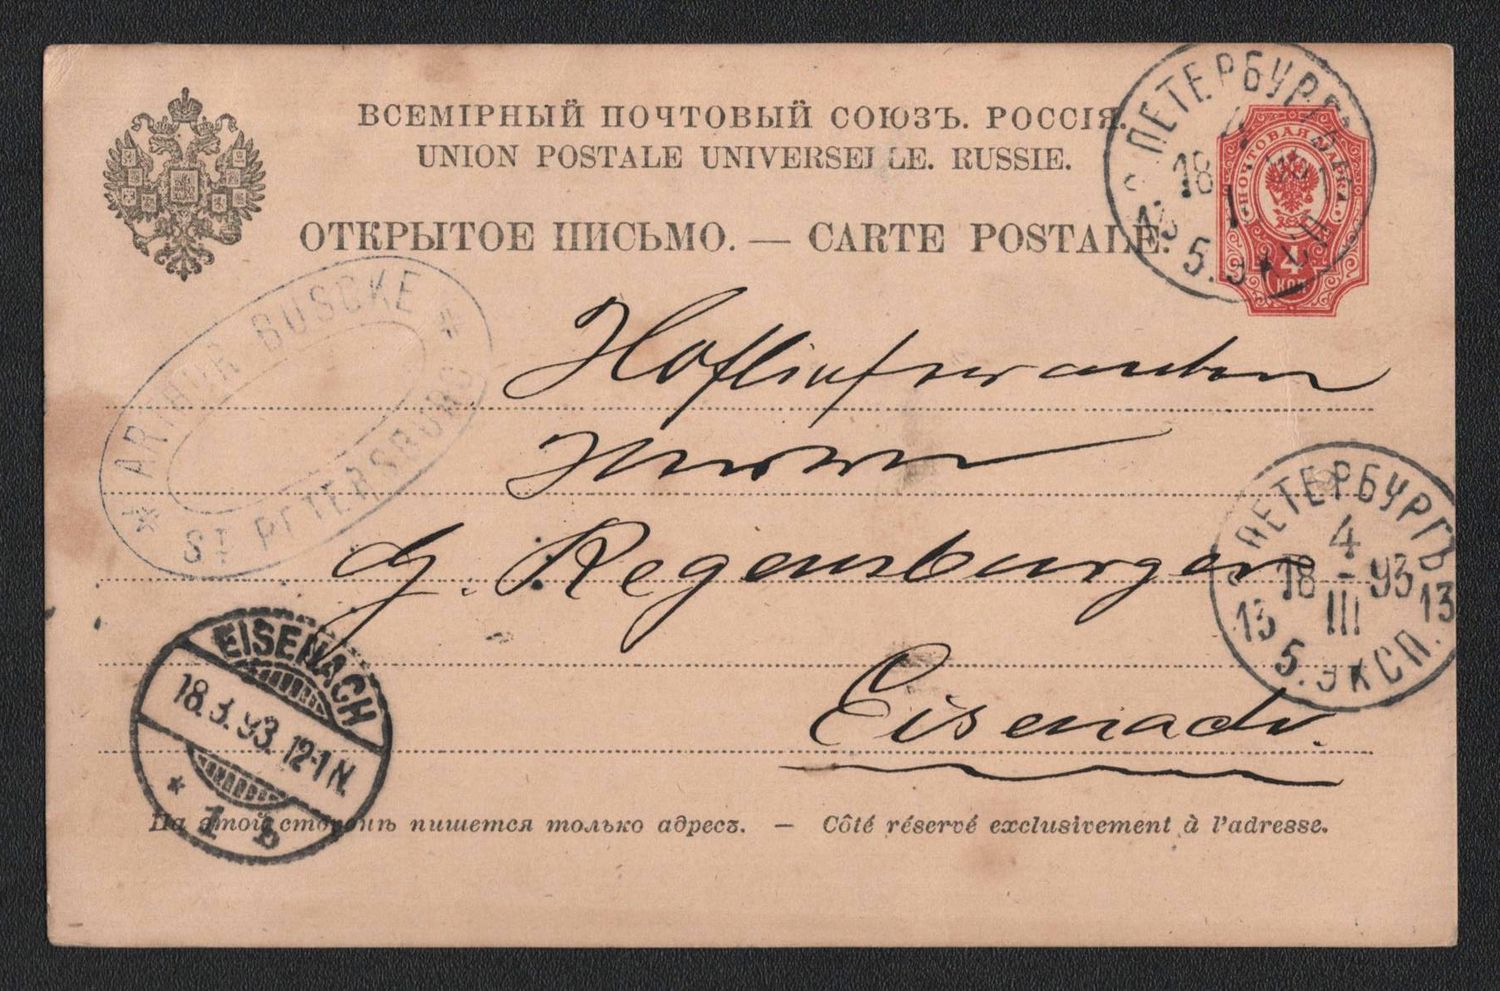 ВСЕМІРНЫЙ ПОЧТОВЫЙ СОЮЗЪ. РОССІЯ.
UNION POSTALE UNIVERSELLE. RUSSIE.
ОТКРЫТОЕ ПИСЬМО. — CARTE POSTALE.
ПОЧТОВАЯ МАРКА
4
КОП.
С. ПЕТЕРБУРГЪ
4
18
13
5. ЭКСП.
* ARTHUR BUSCKE *
ST. PETERSBURG
G. Regensburger
Eisenach.
С. ПЕТЕРБУРГЪ
4
18 93
III
13 13
5. ЭКСП.
EISENACH
18.3.93. 12-1N.
* 1 b
На этой сторонѣ пишется только адресъ. — Côté réservé exclusivement à l'adresse.